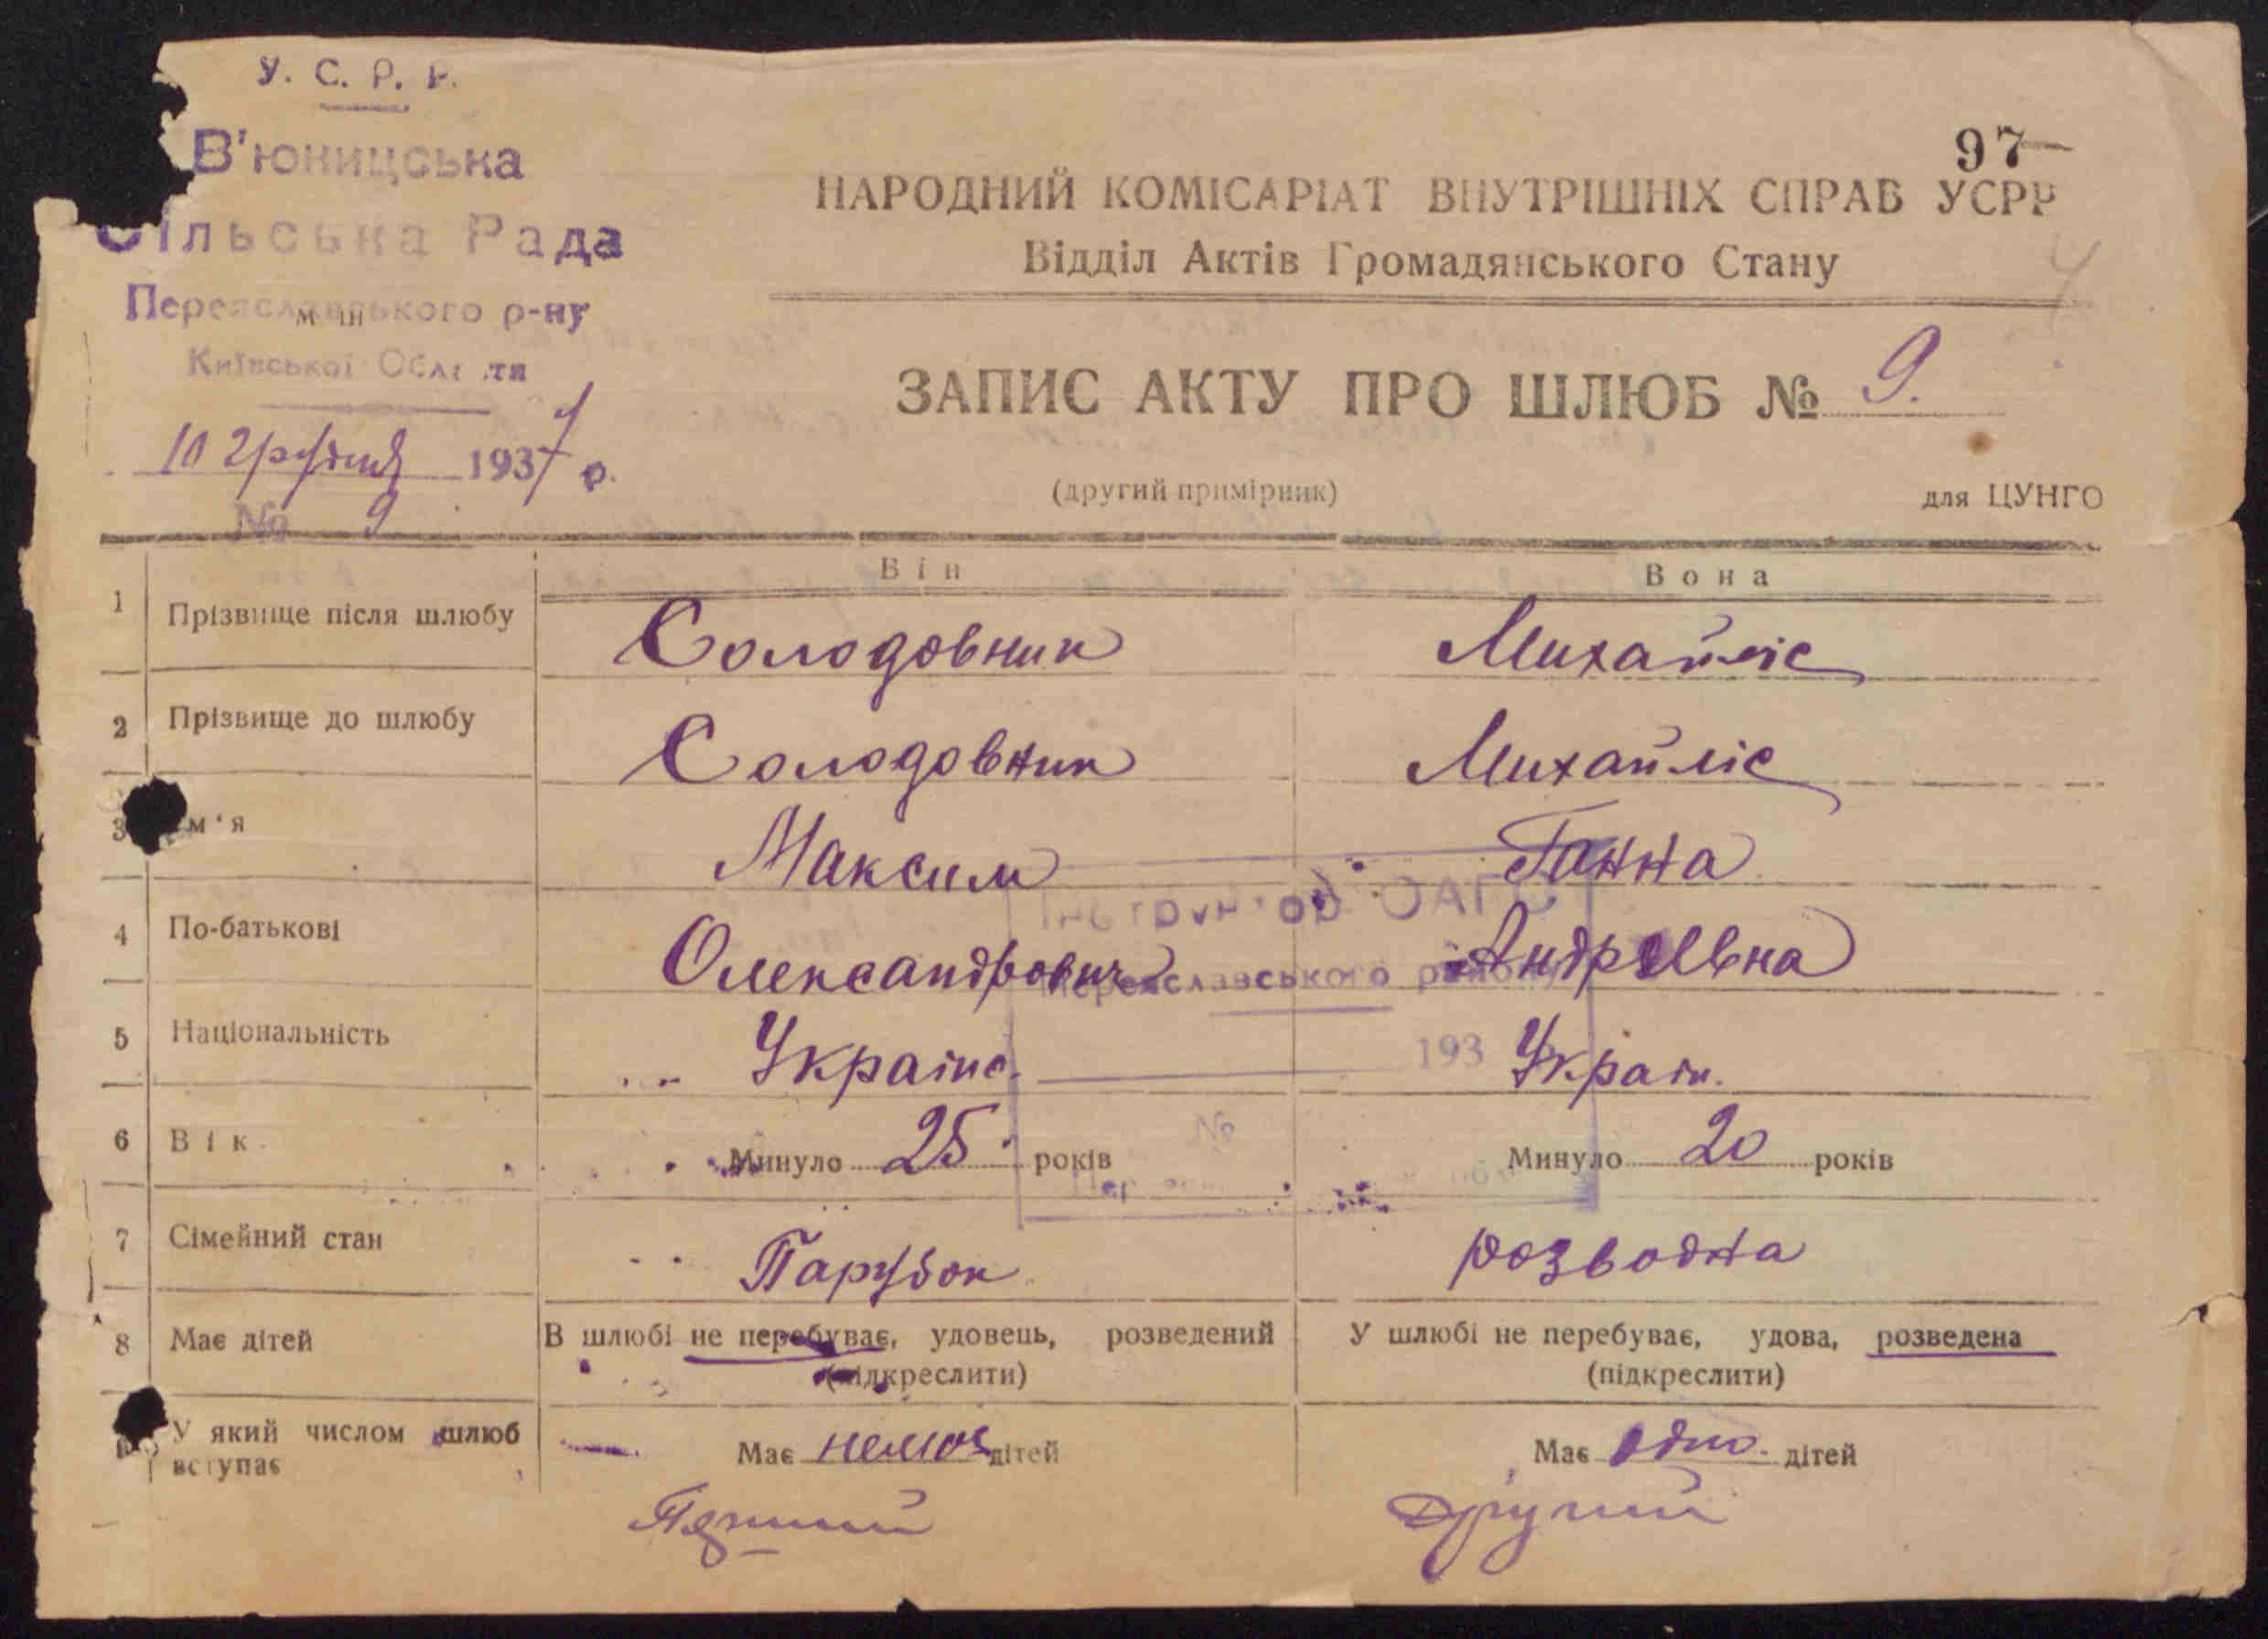 У. С. Р. Р.
В'юницська
Сільська Рада
Переяславського р-ну
Київської Области
10 грудня 1937 р.
№ 9
97
НАРОДНИЙ КОМІСАРІАТ ВНУТРІШНІХ СПРАВ УСРР
Відділ Актів Громадянського Стану
4
ЗАПИС АКТУ ПРО ШЛЮБ № 9.
(другий примірник)
для ЦУНГО
Він Вона
1 Прізвище після шлюбу Солодовник Михайліс
2 Прізвище до шлюбу Солодовник Михайліс
3 м'я Максим Ганна
Інструктор ОАГС
4 По-батькові Олександрович Андріївна
Переяславського району
5 Національність Україн. Україн.
193
6 Вік Минуло 25 років Минуло 20 років
№
7 Сімейний стан Парубок розводна
8 Має дітей В шлюбі не перебуває, удовець, розведений У шлюбі не перебуває, удова, розведена
(підкреслити) (підкреслити)
У який числом шлюб вступає Має немає дітей Має одно. дітей
Другий